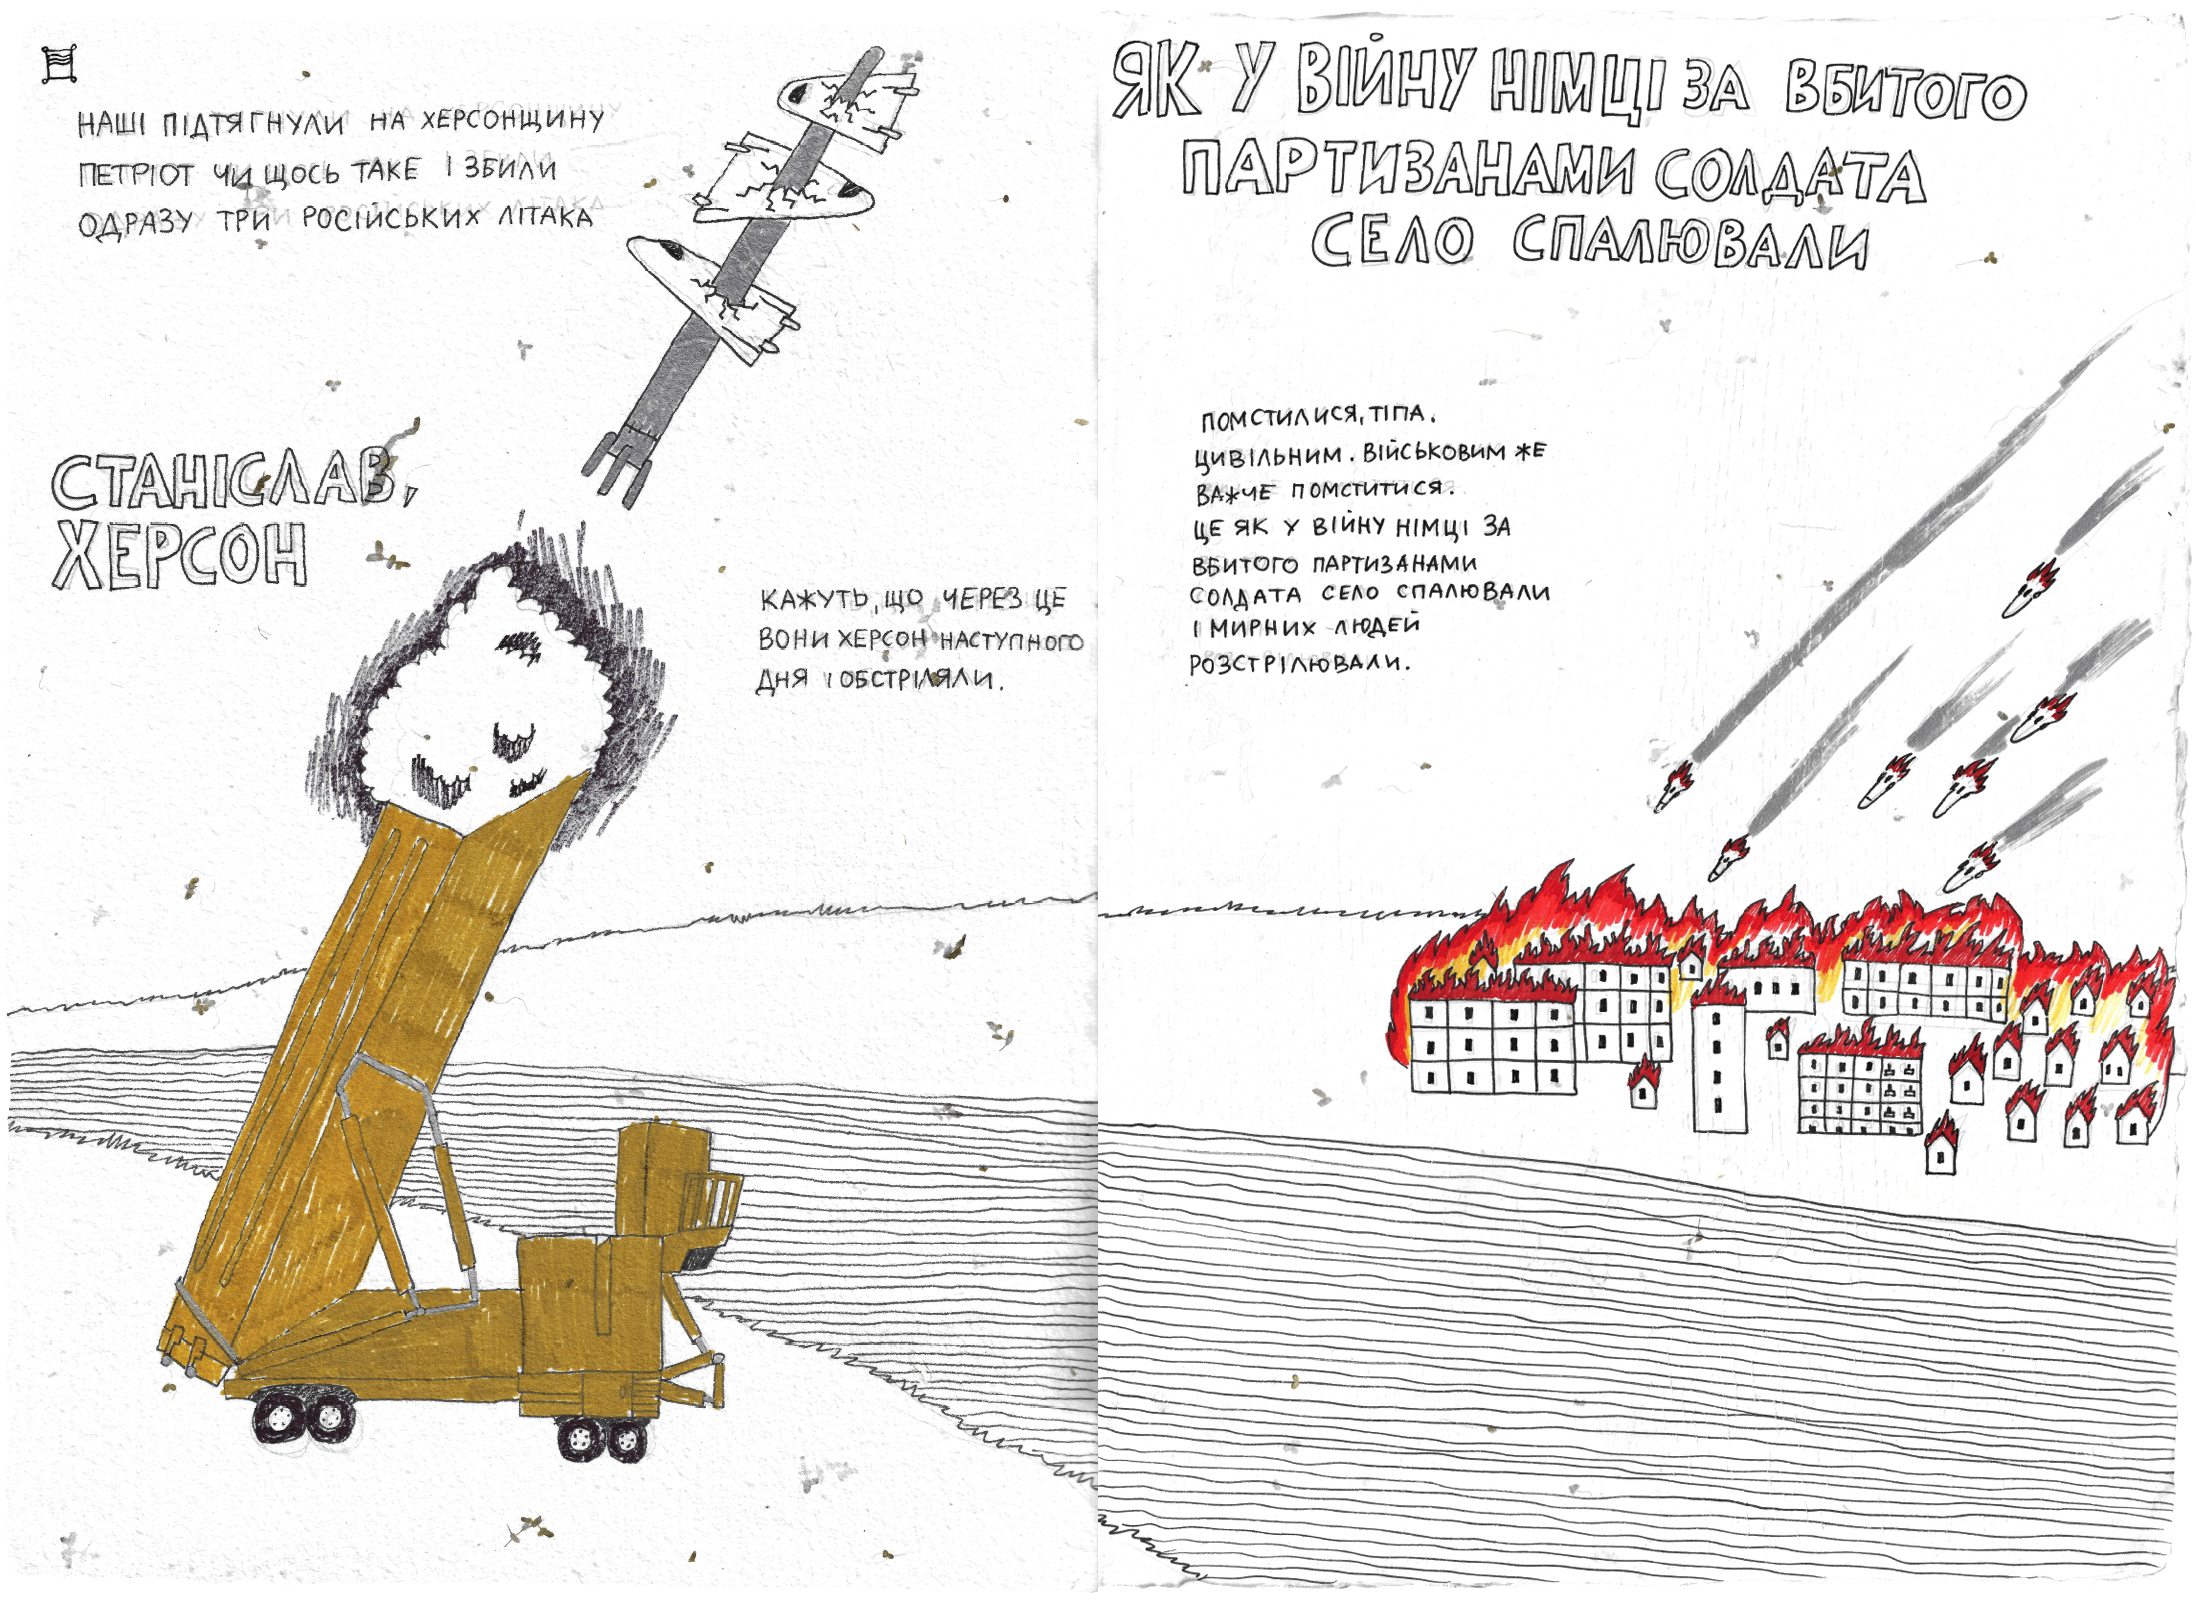 НАШІ ПІДТЯГНУЛИ НА ХЕРСОНЩИНУ
ПЕТРІОТ ЧИ ЩОСЬ ТАКЕ І ЗБИЛИ
ОДРАЗУ ТРИ РОСІЙСЬКИХ ЛІТАКА
СТАНІСЛАВ,
ХЕРСОН
КАЖУТЬ, ЩО ЧЕРЕЗ ЦЕ
ВОНИ ХЕРСОН НАСТУПНОГО
ДНЯ І ОБСТРІЛЯЛИ.
ЯК У ВІЙНУ НІМЦІ ЗА ВБИТОГО
ПАРТИЗАНАМИ СОЛДАТА
СЕЛО СПАЛЮВАЛИ
ПОМСТИЛИСЯ, ТІПА.
ЦИВІЛЬНИМ. ВІЙСЬКОВИМ ЖЕ
ВАЖЧЕ ПОМСТИТИСЯ.
ЦЕ ЯК У ВІЙНУ НІМЦІ ЗА
ВБИТОГО ПАРТИЗАНАМИ
СОЛДАТА СЕЛО СПАЛЮВАЛИ
І МИРНИХ ЛЮДЕЙ
РОЗСТРІЛЮВАЛИ.